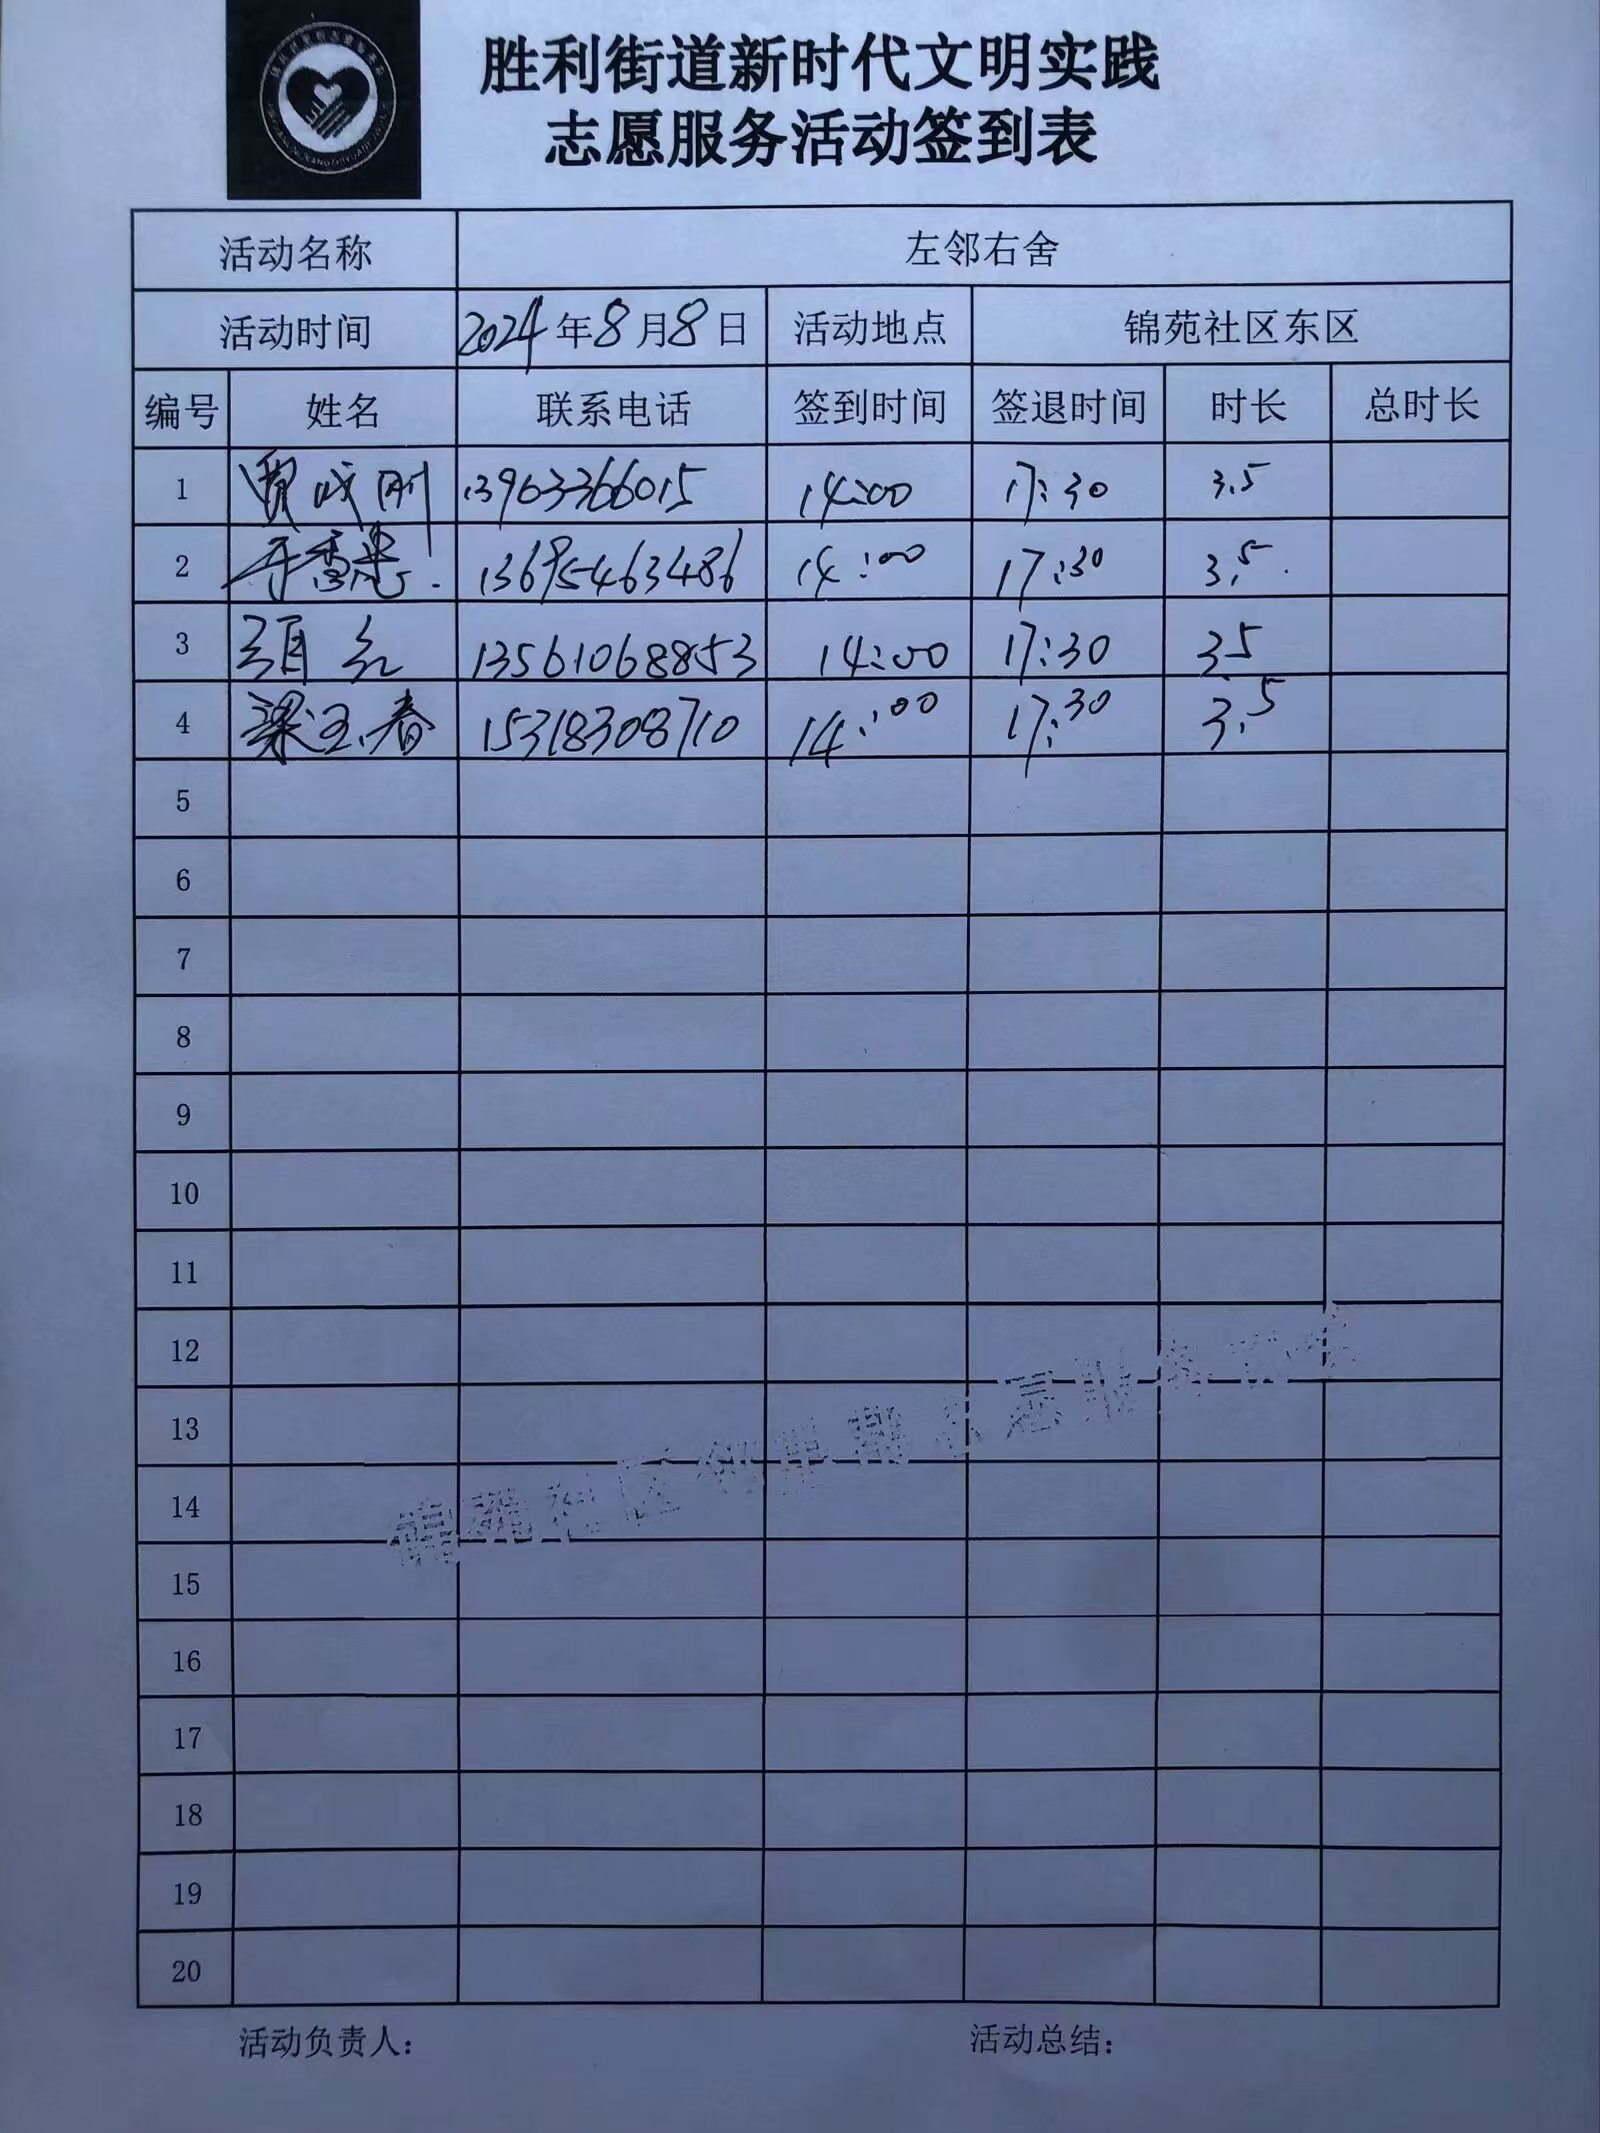 胜利街道新时代文明实践
志愿服务活动签到表
活动名称 左邻右舍
活动时间 2024年8月8日 活动地点 锦苑社区东区
编号 姓名 联系电话 签到时间 签退时间 时长 总时长
1 贾成刚 13963366015 14:00 17:30 3.5
2 13695463486 14:00 17:30 3.5
3 13561068853 14:00 17:30 3.5
4 梁玉春 15318308710 14:00 17:30 3.5
5
6
7
8
9
10
11
12
13
14
15
16
17
18
19
20
活动负责人： 活动总结：